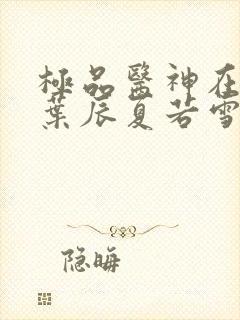 極品醫神在
葉辰夏若雪
隐晦